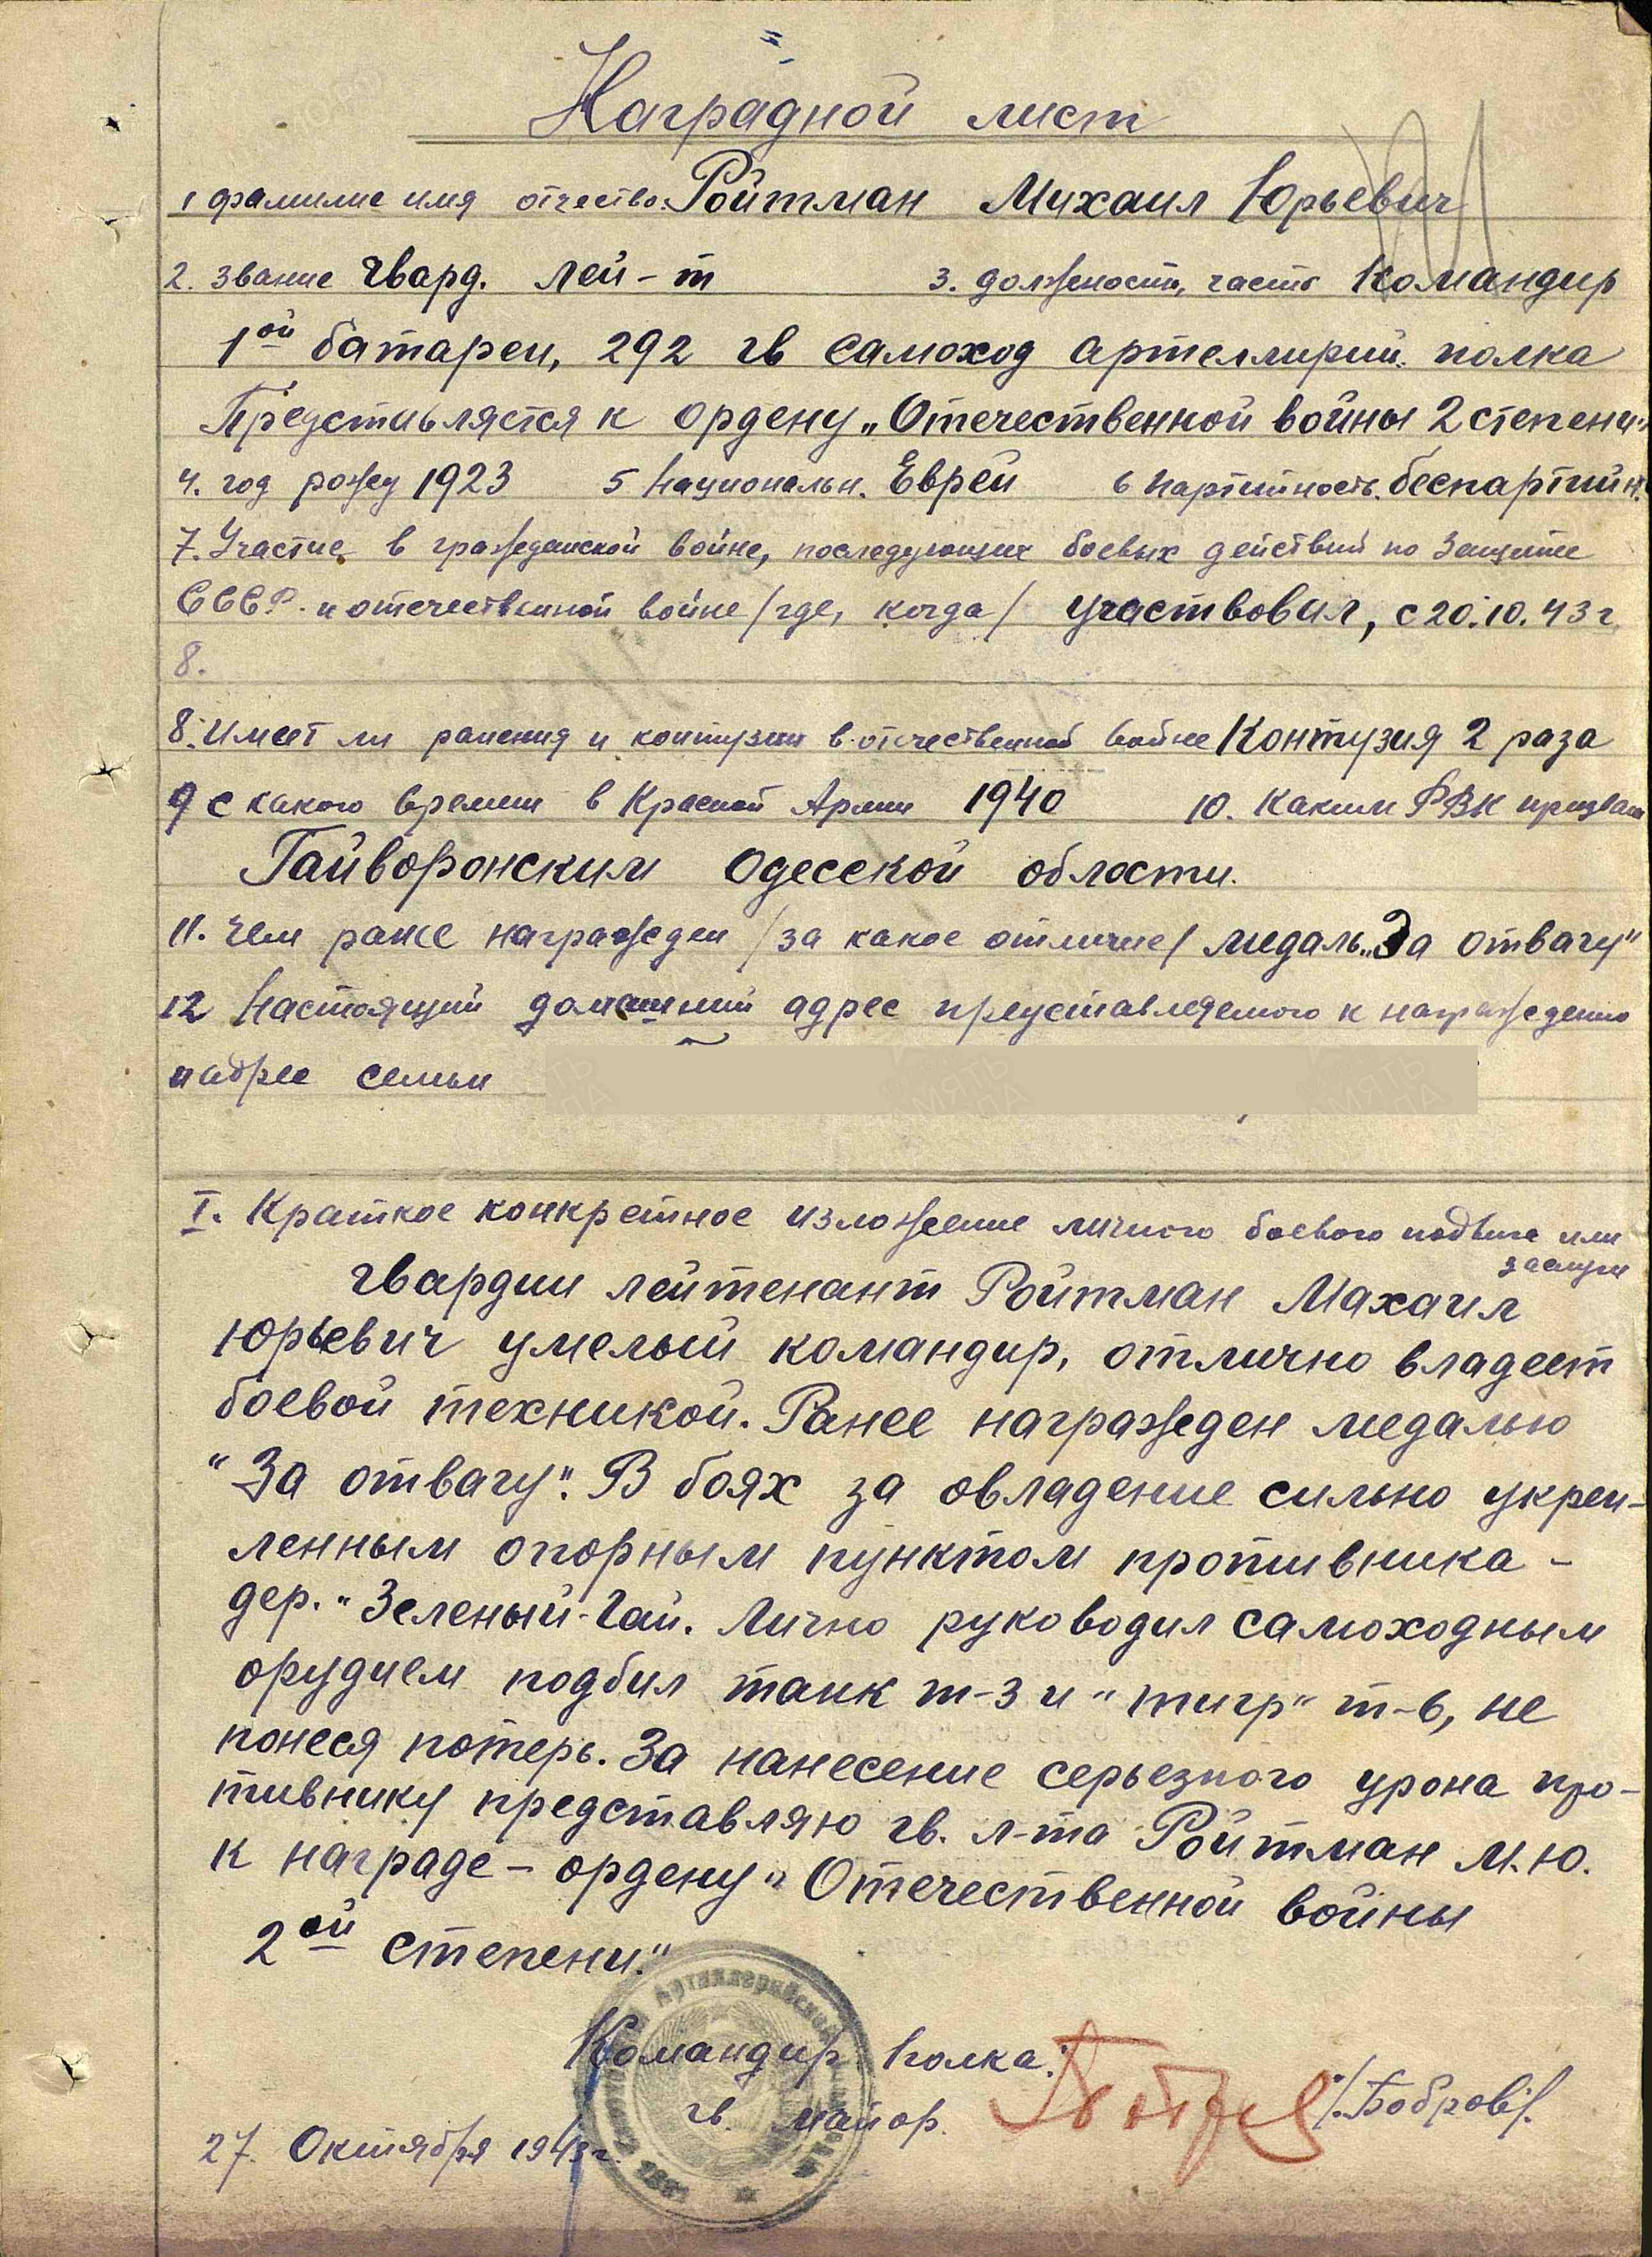 Наградной лист
1 фамилие имя отчество. Ройтман Михаил Юрьевич
2. звание гвард. лей-т 3. должность, часть Командир
1ой батареи, 292 гв самоход артеллирий. полка
Представляется к ордену „Отечественной войны 2 степени"
4. год рожд 1923 5 Национальн. Еврей 6 партийность. беспартийн.
7. Участие в гражданской войне, последующих боевых действий по защите
СССР. и отечественной войне /где, когда/ участвовал, с 20.10.43 г.
8.
8. Имеет ли ранения и контузии в отечественной войне Контузия 2 раза
9 с какого времени в Красной Армии 1940 10. Каким РВК призван
Гайворонским Одесской области.
11. Чем ранее награжден /за какое отличие/ медаль „За отвагу"
12 Настоящий домашний адрес представляемого к награждению
и адрес семьи
I. Краткое конкретное изложение личного боевого подвига или
заслуги
гвардии лейтенант Ройтман Махаил
Юрьевич умелый командир, отлично владеет
боевой техникой. Ранее награжден медалью
"За отвагу". В боях за овладение сильно укреп-
ленным опорным пунктом противника -
дер. "Зеленый-Гай. Лично руководил самоходным
орудием подбил танк т-3 и "тигр" т-6, не
понеся потерь. За нанесение серьезного урона про-
тивнику представляю гв. л-та Ройтман М.Ю.
к награде - ордену "Отечественной войны
2ой степени."
Командир полка:
гв. майор. /.Бобров/.
27. Октября 1943 г.